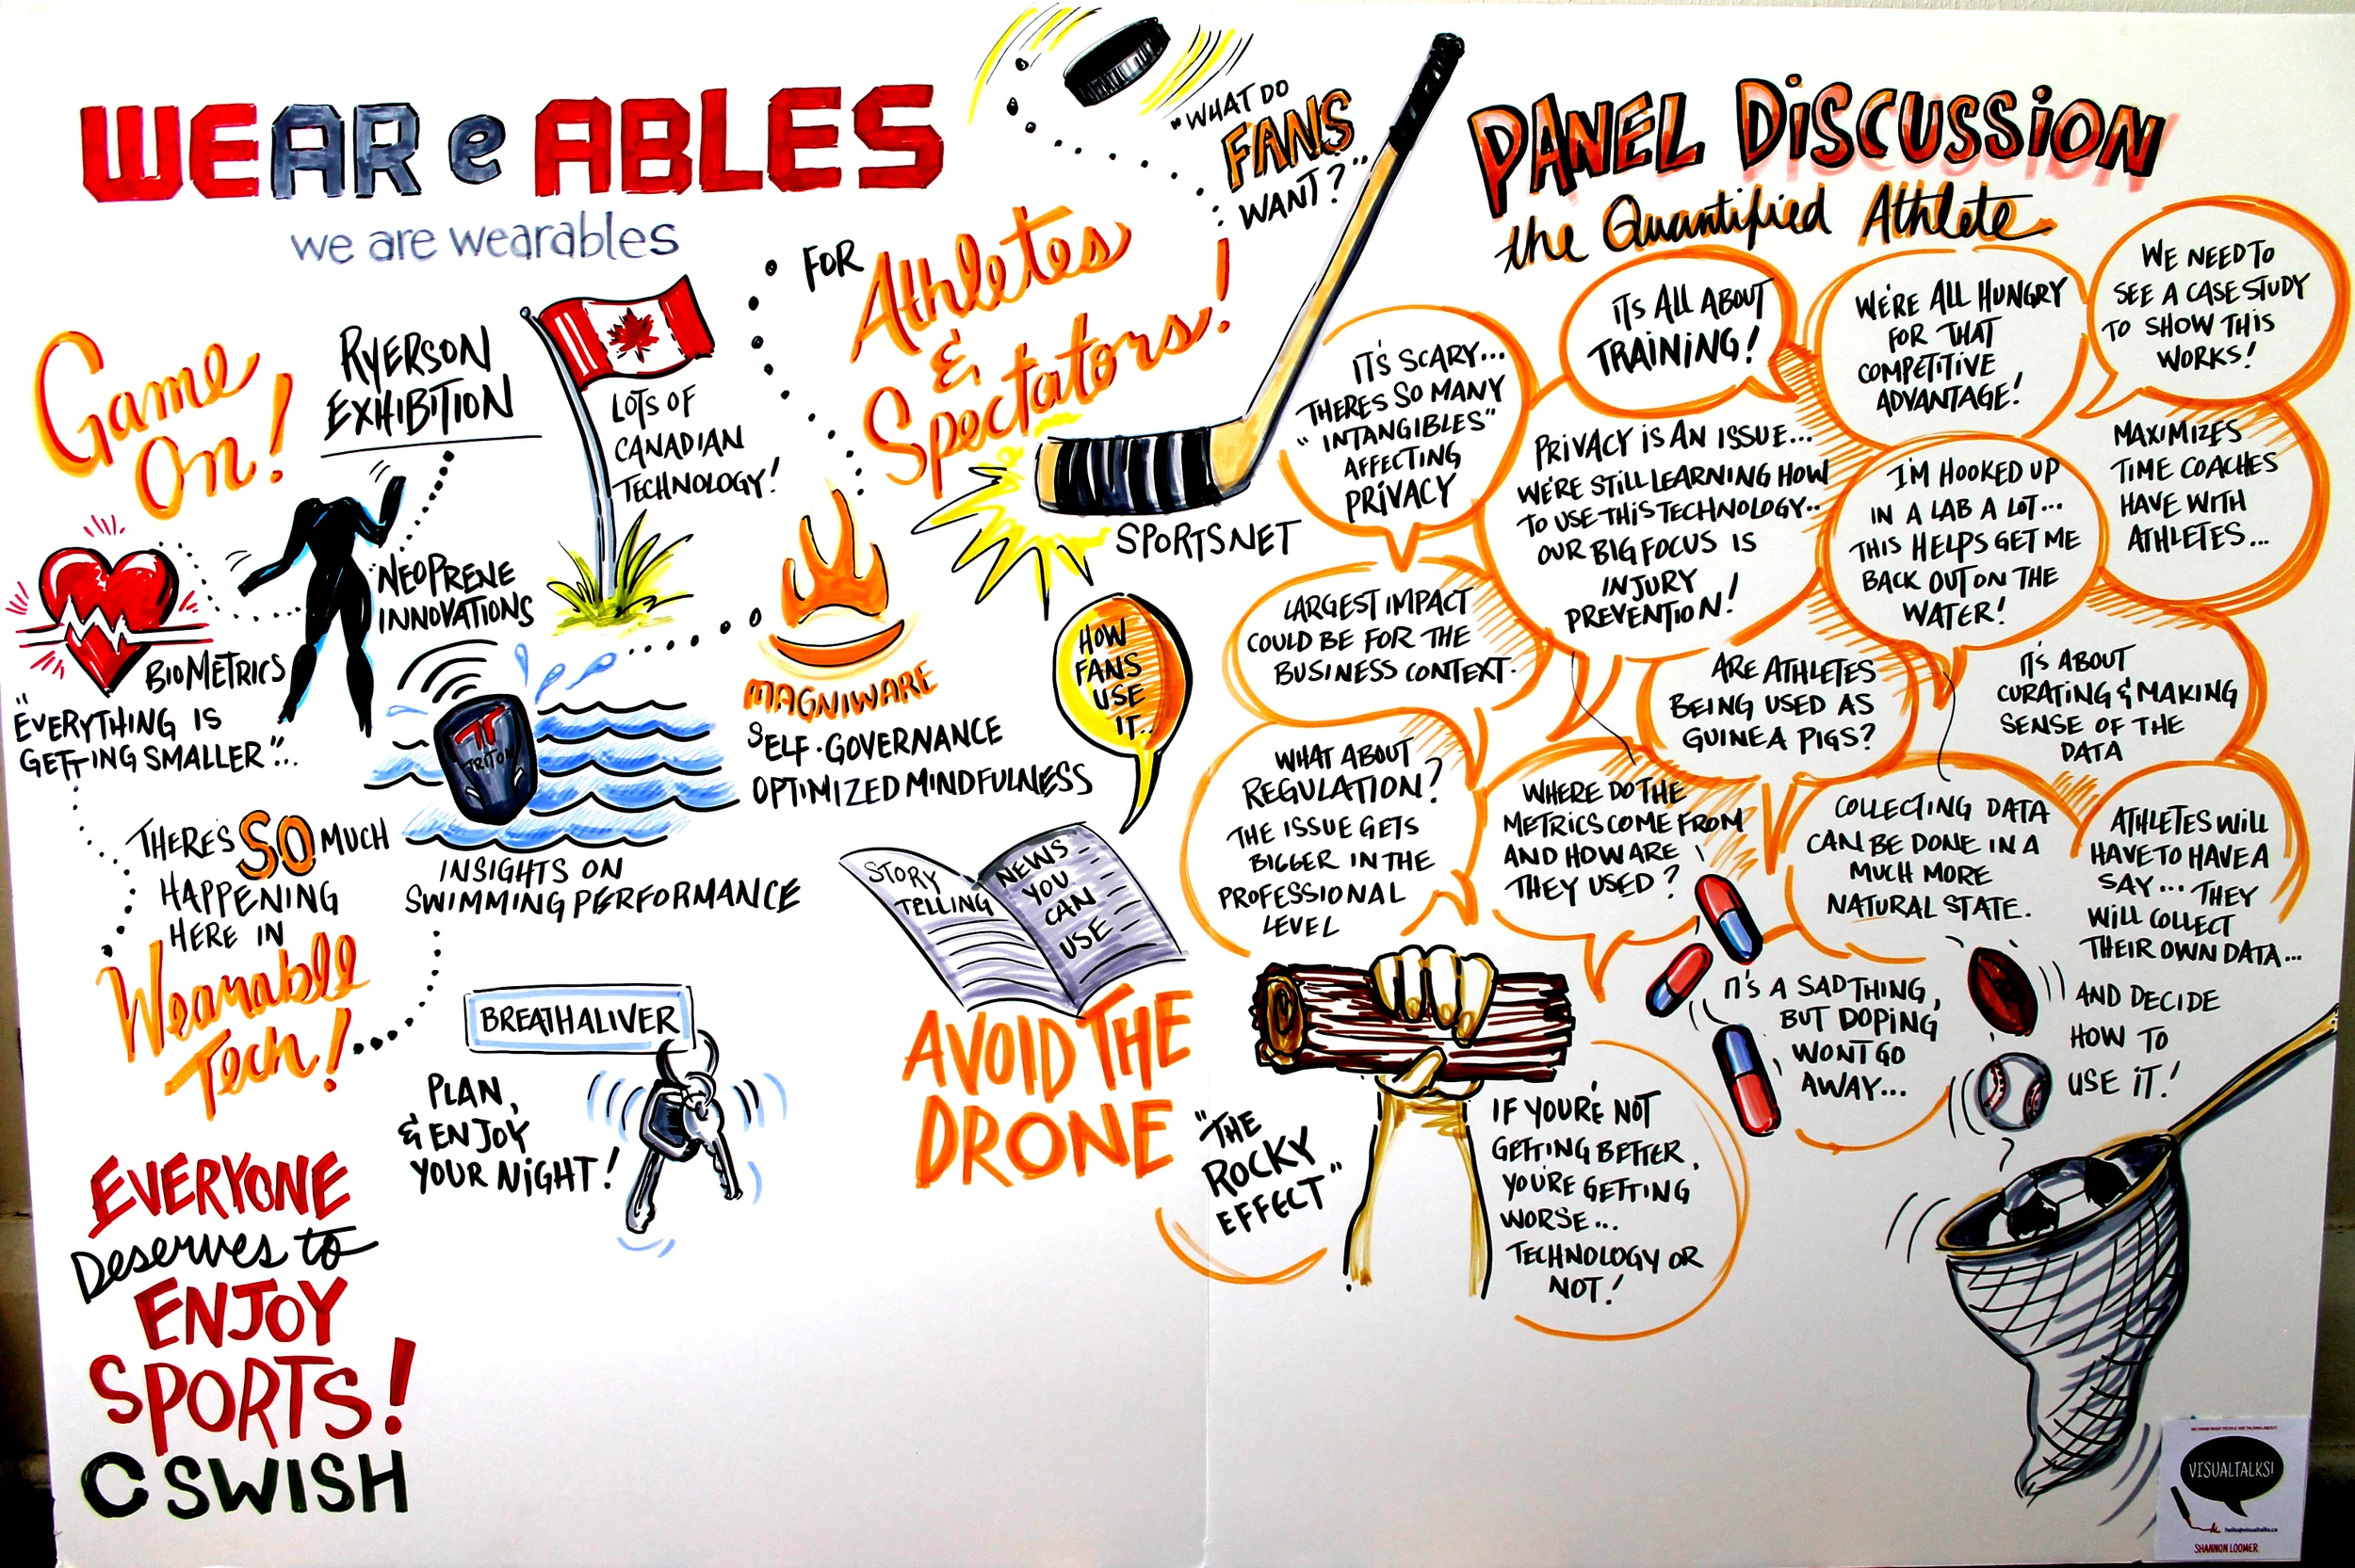 WEAR e ABLES
we are wearables
Game
On!
RYERSON
EXHIBITION
LOTS OF
CANADIAN
TECHNOLOGY!
NEOPRENE
INNOVATIONS
BIOMETRICS
"EVERYTHING IS
GETTING SMALLER"...
TRITON
INSIGHTS ON
SWIMMING PERFORMANCE
THERE'S SO MUCH
HAPPENING
HERE IN
Wearable
Tech!
BREATHALIVER
PLAN,
& ENJOY
YOUR NIGHT!
EVERYONE
Deserves to
ENJOY
SPORTS!
CSWISH
FOR
Athletes
&
Spectators!
"WHAT DO
FANS
WANT?"
SPORTSNET
MAGNIWARE
SELF-GOVERNANCE
OPTIMIZED MINDFULNESS
HOW
FANS
USE
IT..
STORY
TELLING
NEWS
YOU
CAN
USE
AVOID THE
DRONE
PANEL DISCUSSION
the Quantified Athlete
IT'S SCARY...
THERES SO MANY
"INTANGIBLES"
AFFECTING
PRIVACY
ITS ALL ABOUT
TRAINING!
WE'RE ALL HUNGRY
FOR THAT
COMPETITIVE
ADVANTAGE!
WE NEED TO
SEE A CASE STUDY
TO SHOW THIS
WORKS!
PRIVACY IS AN ISSUE...
WE'RE STILL LEARNING HOW
TO USE THIS TECHNOLOGY..
OUR BIG FOCUS IS
INJURY
PREVENTION!
I'M HOOKED UP
IN A LAB A LOT...
THIS HELPS GET ME
BACK OUT ON THE
WATER!
MAXIMIZES
TIME COACHES
HAVE WITH
ATHLETES...
LARGEST IMPACT
COULD BE FOR THE
BUSINESS CONTEXT.
ARE ATHLETES
BEING USED AS
GUINEA PIGS?
IT'S ABOUT
CURATING & MAKING
SENSE OF THE
DATA
WHAT ABOUT
REGULATION?
THE ISSUE GETS
BIGGER IN THE
PROFESSIONAL
LEVEL
WHERE DO THE
METRICS COME FROM
AND HOW ARE
THEY USED?
COLLECTING DATA
CAN BE DONE IN A
MUCH MORE
NATURAL STATE.
ATHLETES WILL
HAVE TO HAVE A
SAY... THEY
WILL COLLECT
THEIR OWN DATA...
AND DECIDE
HOW TO
USE IT!
IT'S A SAD THING,
BUT DOPING
WONT GO
AWAY...
"THE
ROCKY
EFFECT"
IF YOU'RE NOT
GETTING BETTER,
YOU'RE GETTING
WORSE...
TECHNOLOGY OR
NOT!
WE DRAW WHAT PEOPLE ARE TALKING ABOUT!
VISUALTALKS!
hello@visualtalks.ca
SHANNON LOOMER